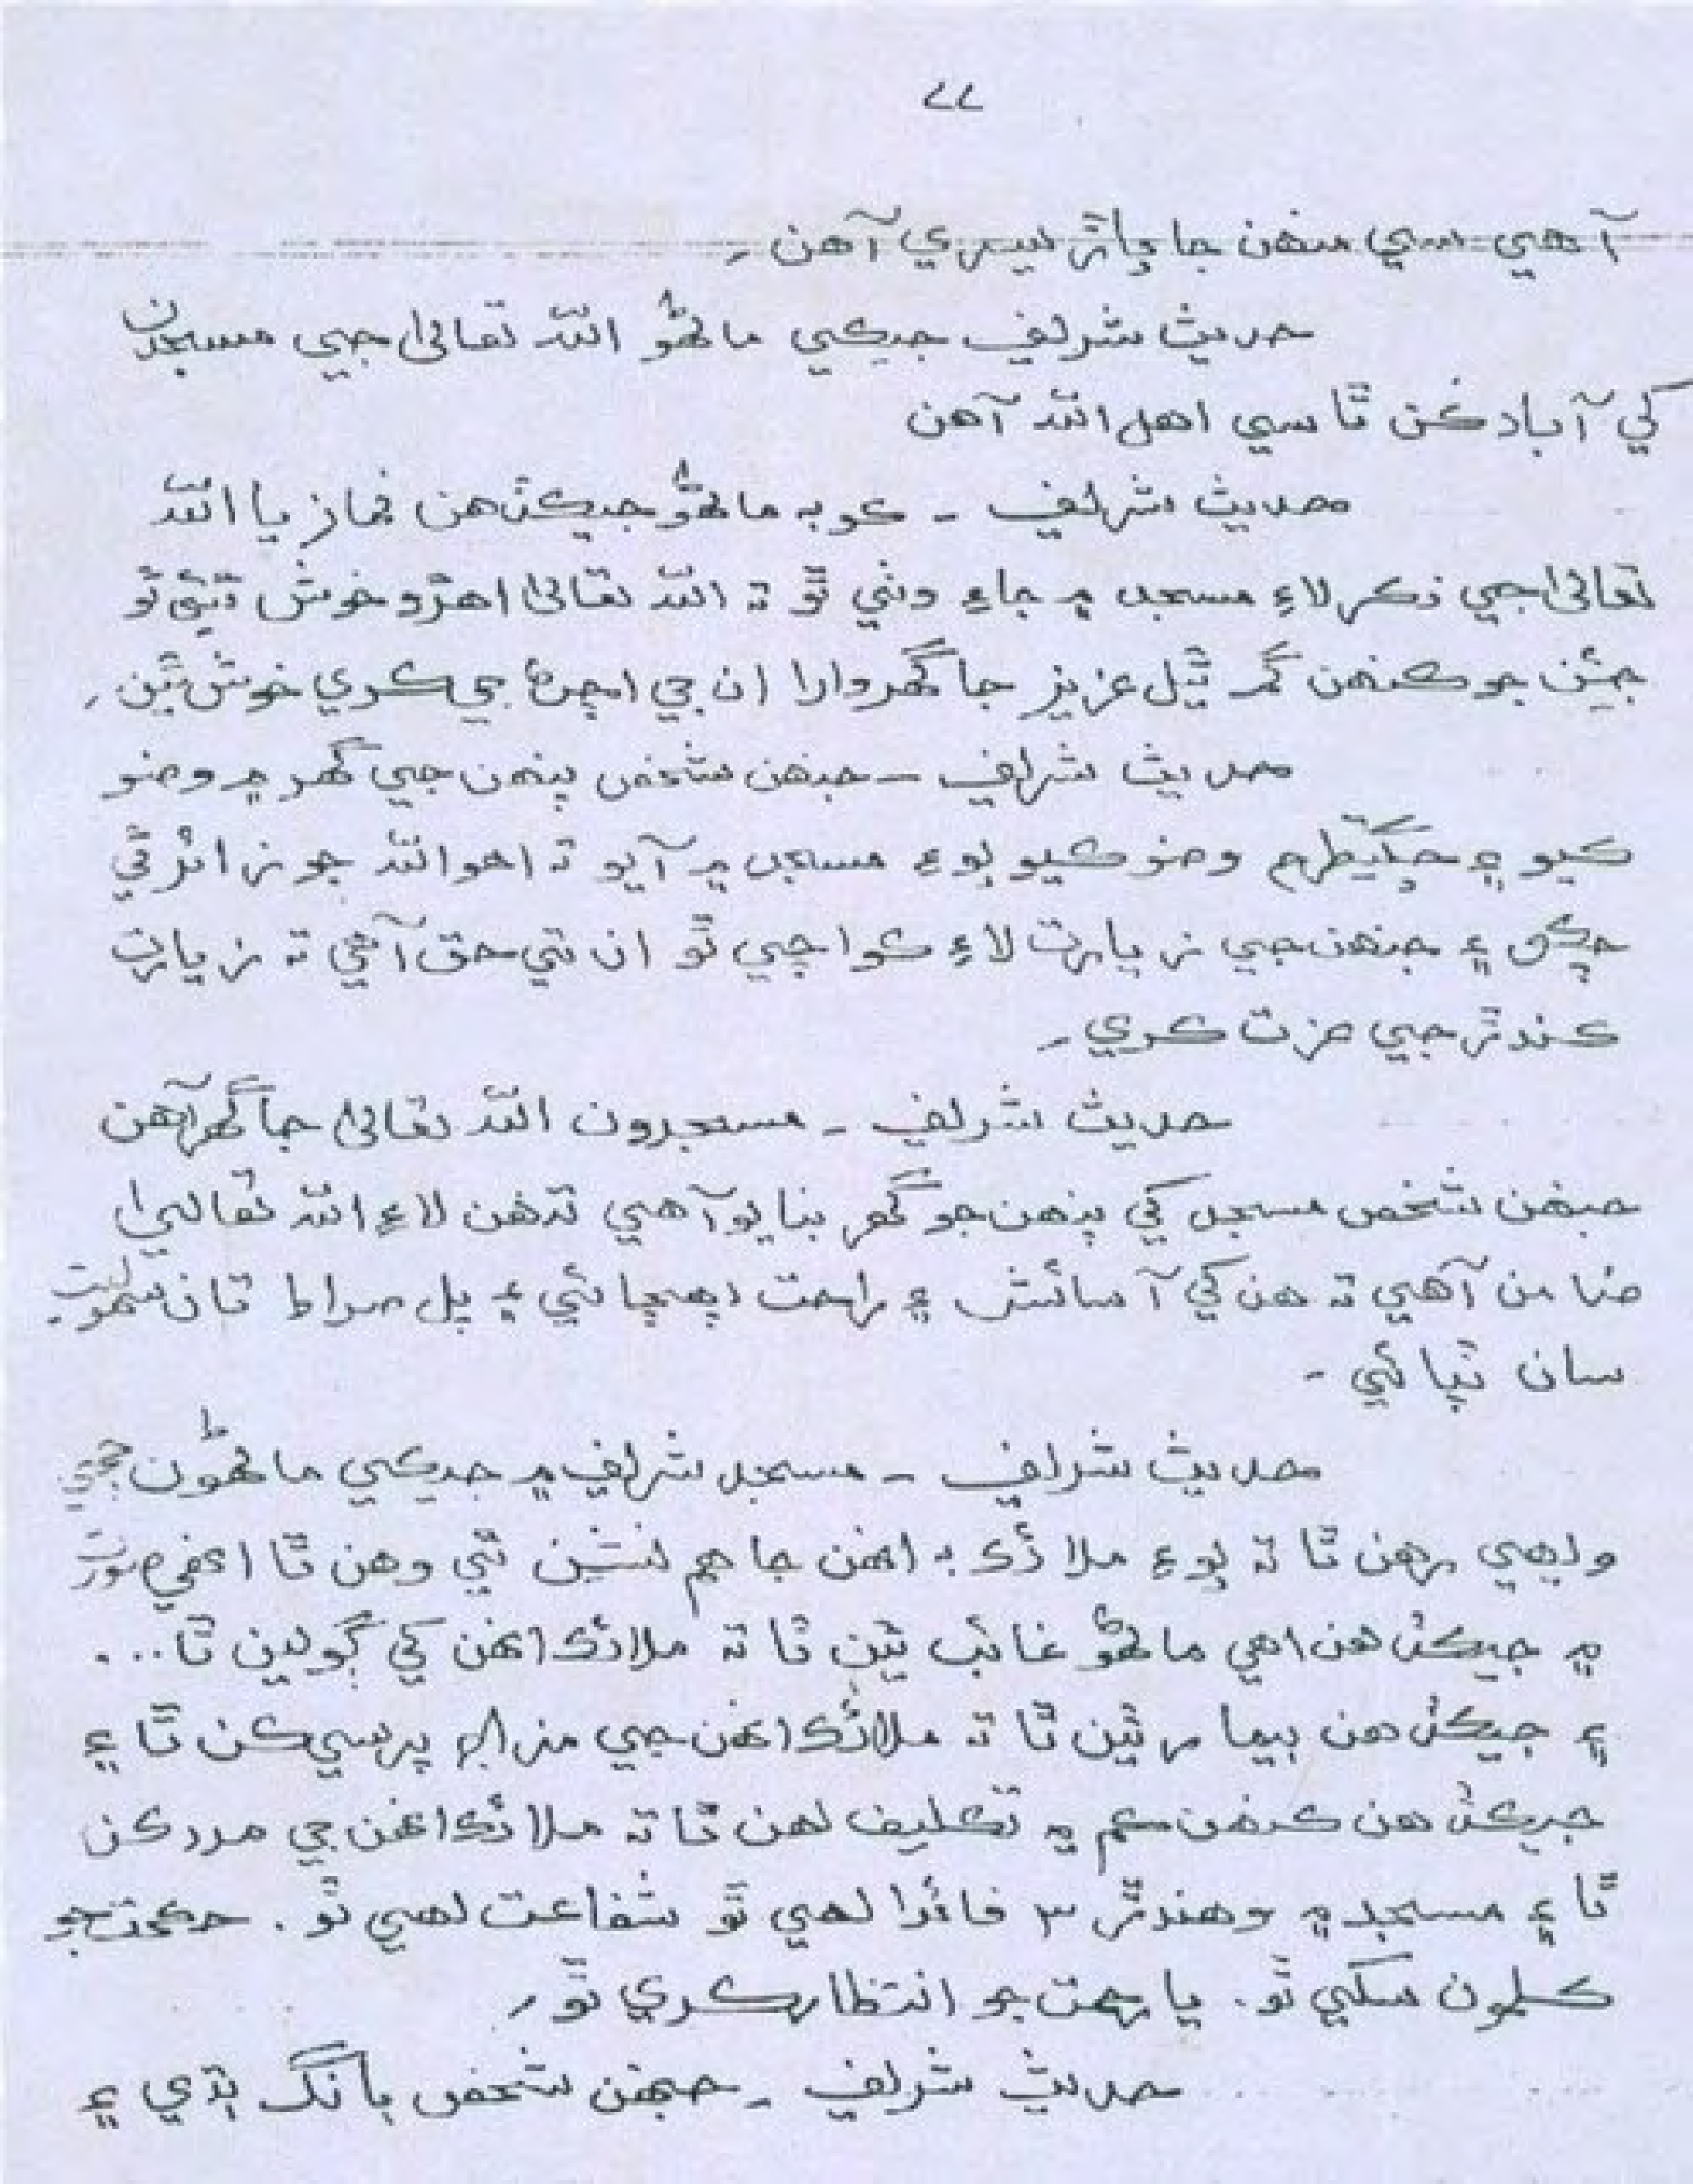 ٧٧
آهي سي منهن جا پاڙيسري آهن۔
حديث شريف جيڪي ماڻهو الله تعاليٰ جي مسجدن
کي آباد ڪن ٿا سي اهل الله آهن
حديث شريف - ڪو به ماڻهو جيڪڏهن نماز يا الله
تعاليٰ جي ذڪر لاءِ مسجد ۾ جاءِ وٺي ٿو ته الله تعاليٰ اهڙو خوش ٿئي ٿو
جيئن جو ڪنهن گم ٿيل عزيز جا گهروارا ان جي اچڻ جي ڪري خوش ٿين۔
حديث شريف - جنهن شخص پنهن جي گهر ۾ وضو
ڪيو ۽ چڱيطرح وضو ڪيو پوءِ مسجد ۾ آيو ته اهو الله جو زائر ٿي
چڪو ۽ جنهن جي زيارت لاءِ ڪو اچي ٿو ان تي حق آهي ته زيارت
ڪندڙ جي عزت ڪري۔
حديث شريف - مسجدون الله تعاليٰ جا گهر آهن
جنهن شخص مسجد کي پنهن جو گهر بنايو آهي تنهن لاءِ الله تعاليٰ
ضامن آهي ته هن کي آسائش ۽ راحت پهچائي ۽ پل صراط تان سهوليت
سان ٽپائي -
حديث شريف - مسجد شريف ۾ جيڪي ماڻهون
ويهي رهن ٿا ته پوءِ ملائڪ به انهن جا هم نشين ٿي وهن ٿا اهڙي صورت
۾ جيڪڏهن اهي ماڻهو غائب ٿين ٿا ته ملائڪ انهن کي ڳولين ٿا...
۽ جيڪڏهن بيمار ٿين ٿا ته ملائڪ انهن جي مزاج پرسي ڪن ٿا ۽
جيڪڏهن ڪنهن ڪم ۾ تڪليف لهن ٿا ته ملائڪ انهن جي مدد ڪن
ٿا ۽ مسجد ۾ وهندڙ ٣ فائدا لهي ٿو شفاعت لهي ٿو. حڪمت جو
ڪلمون سکي ٿو. يا رحمت جو انتظار ڪري ٿو۔
حديث شريف - جنهن شخص بانگ ٻڌي ۽